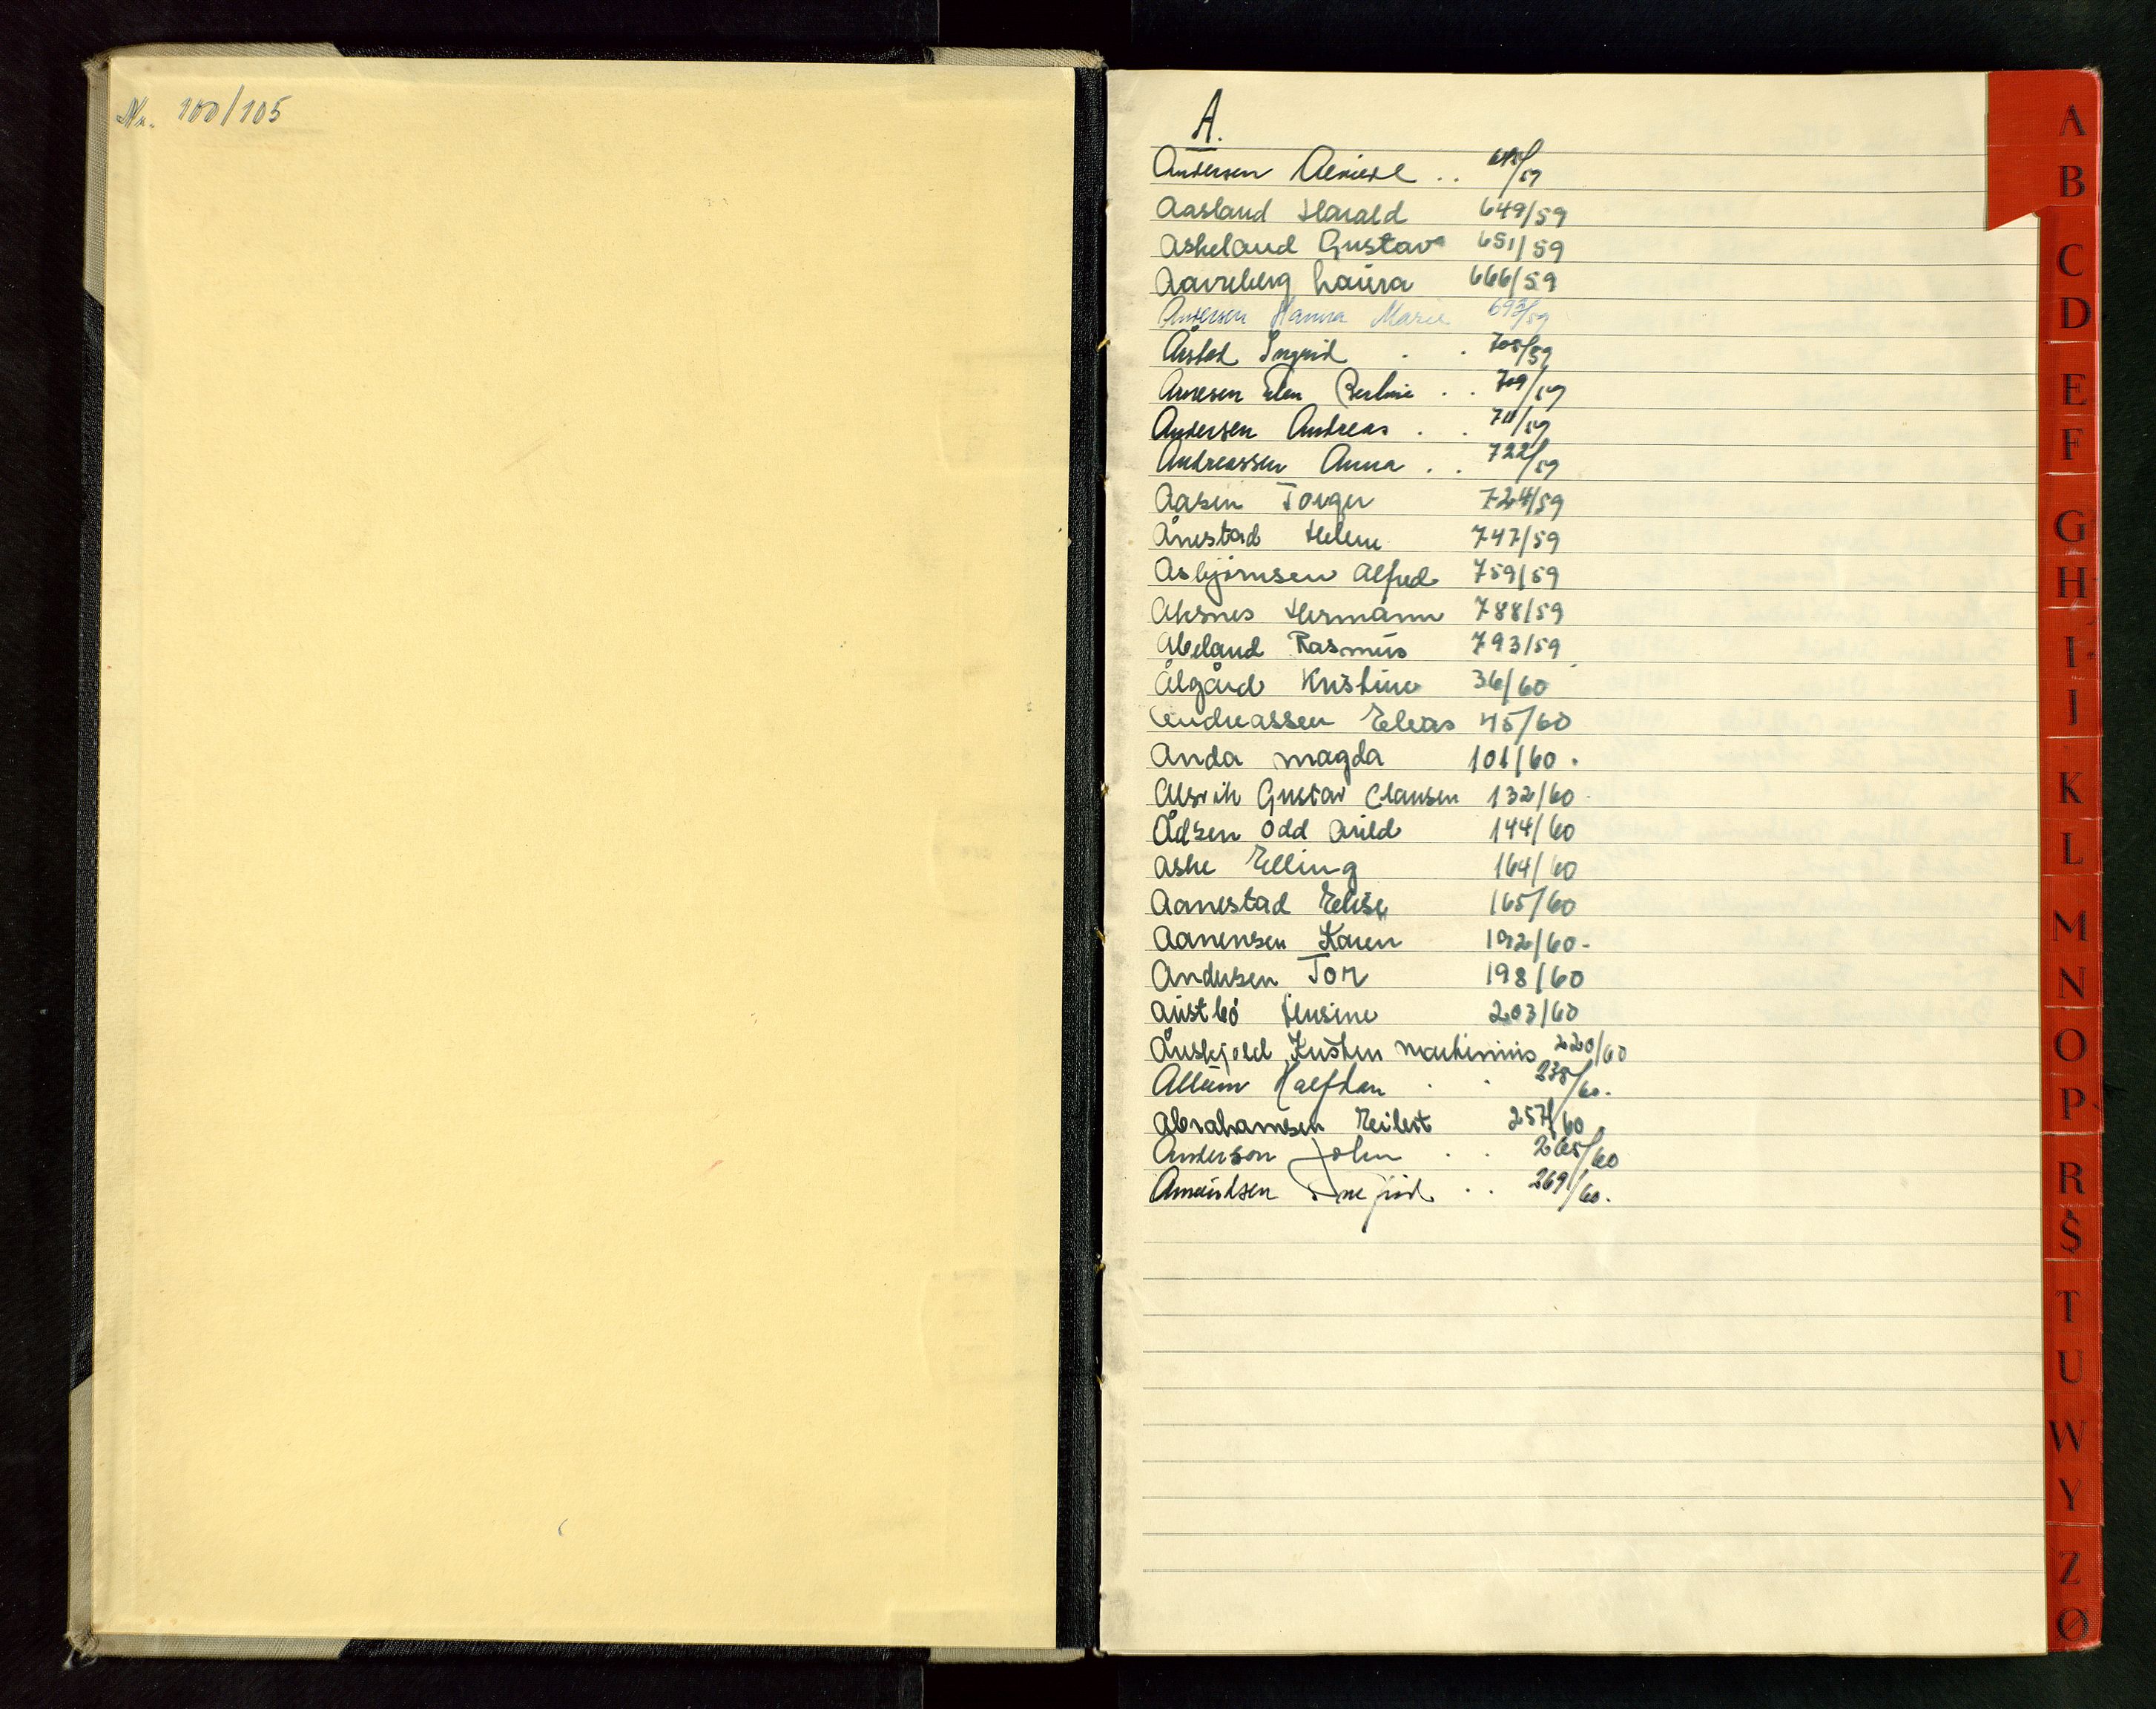 Nr. 100/105
A.
Andersen
Aasland Harald 649/59
Askeland Gustav 651/59
Aavreberg Laura 666/59
Andersen Hanna Marie 693/59
Årstad Ingrid . . 705/59
Arnesen Elen Berline . . 709/59
Andersen Andreas . . 711/59
Andreassen Anna . . 722/59
Aasen Torger 724/59
Ånestad Helene 747/59
Asbjørnsen Alfred 759/59
Aksnes Hermann 788/59
Abeland Rasmus 793/59
Ålgård Kristine 36/60
Andreassen Elias 45/60
Anda Magda 101/60.
Alsvik Gustav Clausen 132/60
Ådsen Odd Arild 144/60
Aske Elling 164/60
Aanestad Elise 165/60
Aanensen Karen 192/60-
Andersen Tor 198/60
Austbö 203/60
220/60
Allum Halfdan . . 238/60.
Abrahamsen Reilert 257/60
Anderson John . . 265/60
Amundsen . . 269/60.
A
B
C
D
E
F
G
H
I
I
K
L
M
N
O
P
R
S
T
U
W
Y
Z
Ø